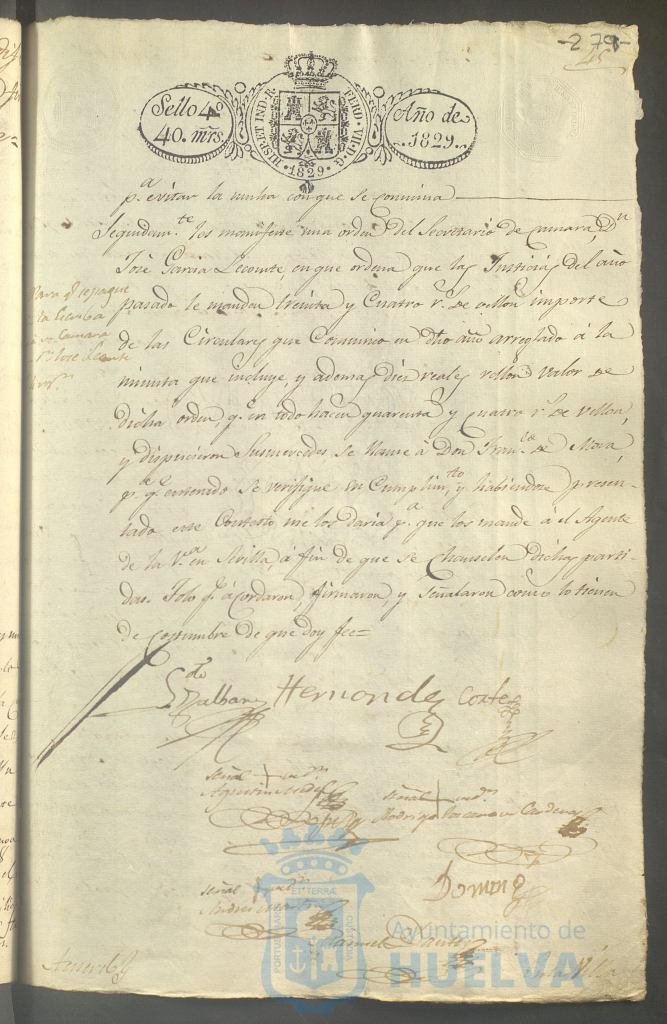 -279-
Sello 4º
40. mrs.
HISP. ET IND. R. FERD. VII. D. G.
1829
Año de
1829.
pª evitar la multa con que se conmina
Segundamte les manifesté una orden del Secretario de Camara, Dn
José Garcia Lecomte, en que ordena que las Justicias del año
pasado le manden treinta y Cuatro rs. de vellon importe
de las Circulares que Comunicó en dho año arreglado á la
minuta que incluye, y ademas diez reales vellon valor de
dicha orden, q. en todo hacen quarenta y quatro rs. de vellon,
y dispusieron Susmercedes se llame á Don Franco de Mora,
pª qe enterado se verifique su Cumplimto, y habiendose presen-
tado este Contestó me los daria pª que los mande á el Agente
de la Vª en Sevilla, á fin de que se chanselen dichas parti-
das. Todo qe acordaron, firmaron, y señalaron como lo tienen
de costumbre de que doy fee=
Para q. se pague
la Escriba
Camara
Dn José Lecomte
Hernandez Cortes
señal + del
Agustin
señal + del
Rodrigo Cardenas
señal + del
Andres
Doming
Manuel
Acuerdo
en la Villa
PORTUS MARIS ET TERRAE CUSTODIA
Ayuntamiento de
HUELVA